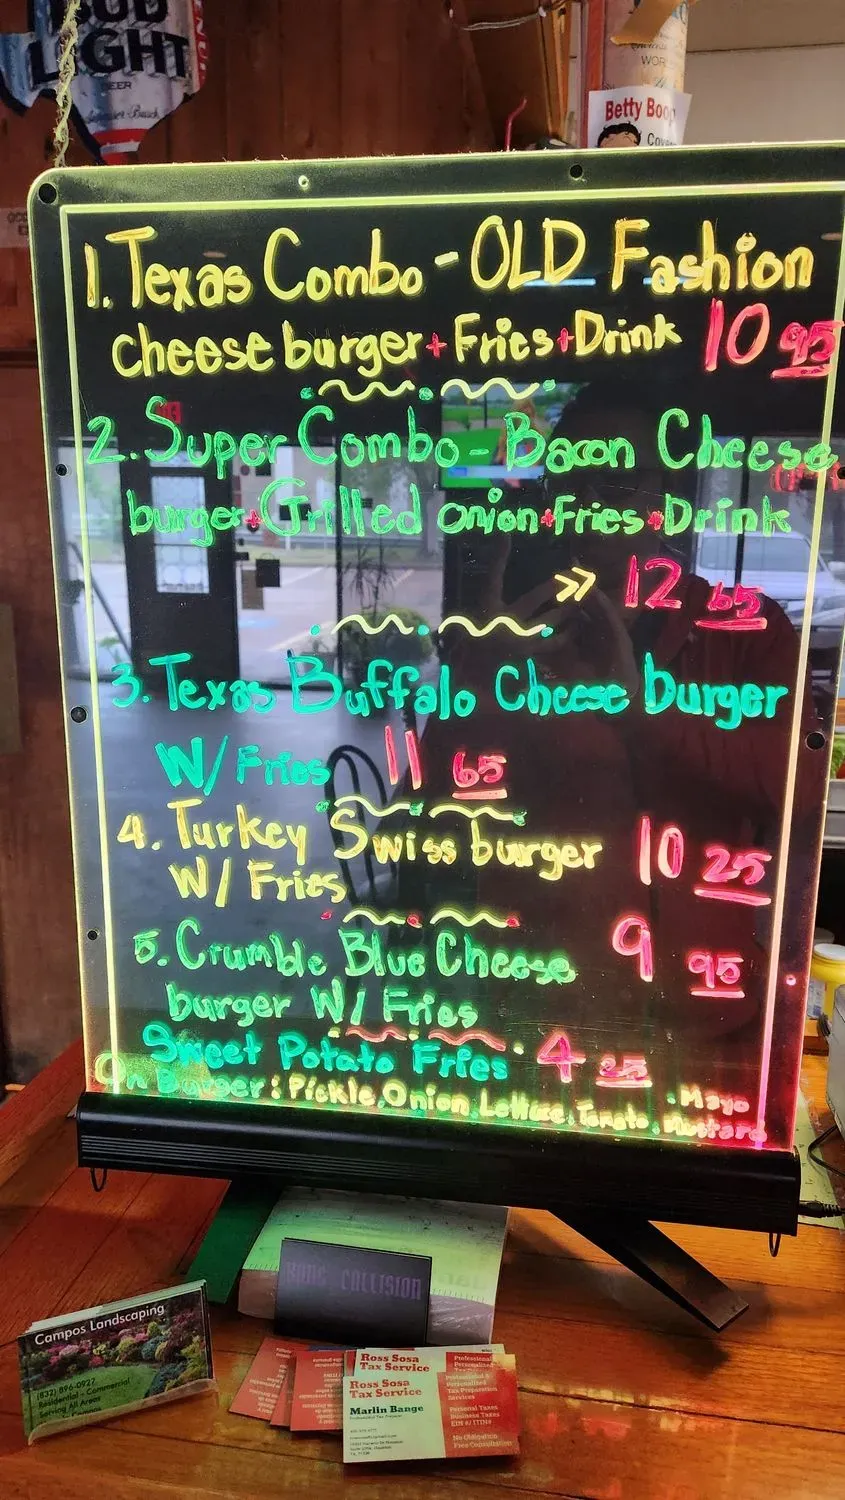 BUD
LIGHT
BEER
Anheuser-Busch
Betty Boop
1. Texas Combo - OLD Fashion
cheese burger + Fries + Drink 10 95
2. Super Combo - Bacon Cheese
burger + Grilled onion + Fries + Drink
>> 12 65
3. Texas Buffalo Cheese burger
W/ Fries 11 65
4. Turkey Swiss burger 10 25
W/ Fries
5. Crumble Blue Cheese 9 95
burger W/ Fries
Sweet Potato Fries 4 25
On Burger: Pickle, Onion, Lettuce, Tomato, Mustard
. Mayo
BANG COLLISION
Campos Landscaping
(832) 896-0927
Residential - Commercial
Serving All Areas
Ross Sosa
Tax Service
Ross Sosa
Tax Service
Marlin Bange
Professional
Personalized
Professional &
Personalized
Tax Preparation
Services
Personal Taxes
Business Taxes
EIN #/ ITINs
No Obligation
Free Consultation